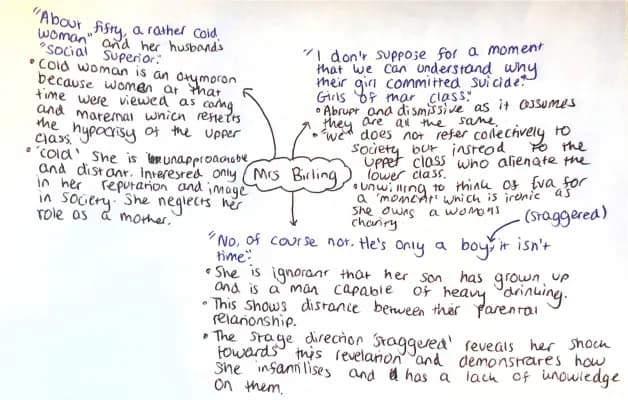 "About fifty, a rather cold
woman" and her husband's
"social superior."
• Cold woman is an oxymoron
because women at that
time were viewed as caring
and maternal which reflects
the hypocrisy of the upper
class.
• 'cold' She is unapproachable
and distant. Interested only
in her reputation and image
in society. She neglects her
role as a mother.
"I don't suppose for a moment
that we can understand why
their girl committed suicide."
Girls of that class."
• Abrupt and dismissive as it assumes
they are all the same.
• "we" does not refer collectively to
society but instead to the
upper class who alienate the
lower class.
• unwilling to think of Eva for
a 'moment' which is ironic as
she owns a womans
charity
Mrs Birling
(staggered)
"No, of course not. He's only a boy, it isn't
time".
• She is ignorant that her son has grown up
and is a man capable of heavy drinking.
• This shows distance between their parental
relationship.
• The stage direction 'staggered' reveals her shock
towards this revelation and demonstrates how
she infantilises and has a lack of knowledge
on them.